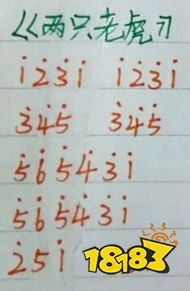 《两只老虎》
i̇ 2̇ 3̇ i̇ i̇ 2̇ 3̇ i̇
3̇ 4̇ 5̇ 3̇ 4̇ 5̇
5̇ 6̇ 5̇ 4̇ 3̇ i̇
5̇ 6̇ 5̇ 4̇ 3̇ i̇
2̇ 5 i̇
18183